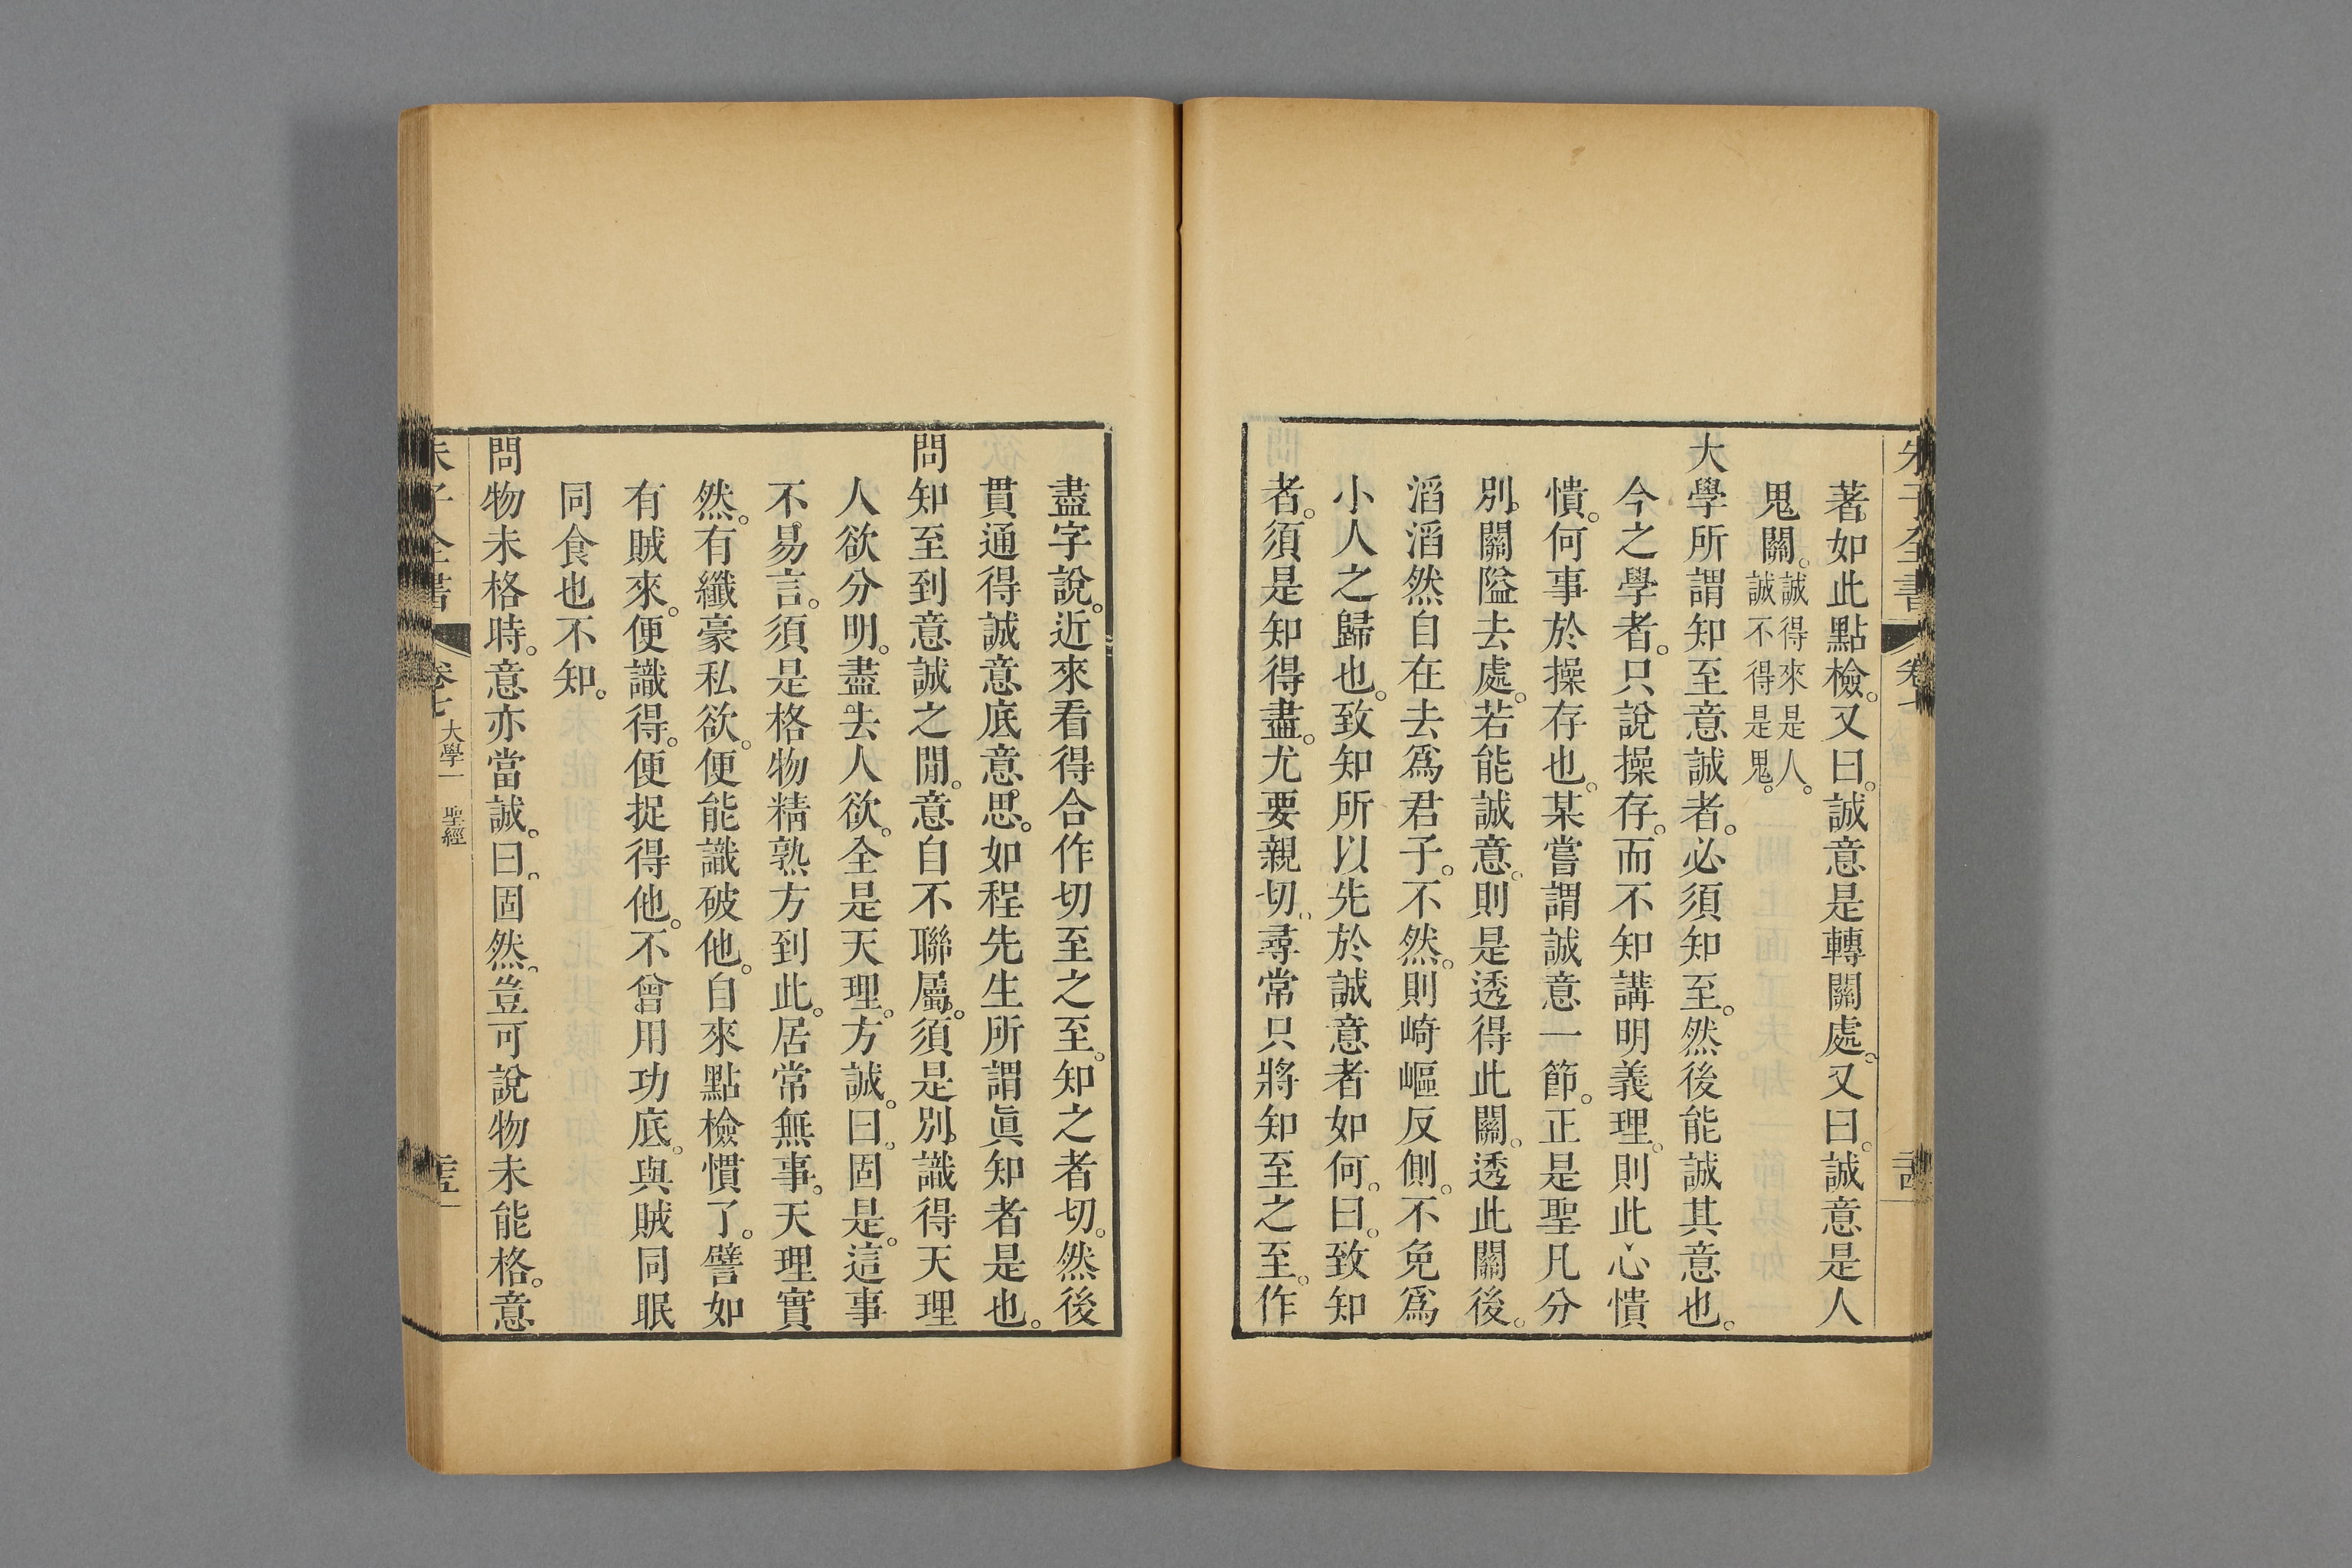 朱子全書 卷七
著如此點檢。又曰。誠意是轉關處。又曰。誠意是人
鬼關。誠得來是人。誠不得是鬼。
大學所謂知至意誠者。必須知至。然後能誠其意也。
今之學者。只說操存。而不知講明義理。則此心憒
憒。何事於操存也。某嘗謂誠意一節。正是聖凡分
別關隘去處。若能誠意。則是透得此關。透此關後。
滔滔然自在去爲君子。不然。則崎嶇反側。不免爲
小人之歸也。致知所以先於誠意者如何。曰。致知
者。須是知得盡。尤要親切。尋常只將知至之至。作
盡字說。近來看得合作切至之至。知之者切。然後
貫通得誠意底意思。如程先生所謂眞知者是也。
問知至到意誠之閒。意自不聯屬。須是別識得天理
人欲分明。盡去人欲。全是天理。方誠。曰。固是。這事
不易言。須是格物精熟方到此。居常無事。天理實
然。有纖豪私欲。便能識破他。自來點檢慣了。譬如
有賊來。便識得。便捉得他。不曾用功底。與賊同眠
同食也不知。
問物未格時。意亦當誠。曰。固然。豈可說物未能格。意
朱子全書 卷七 大學一 聖經